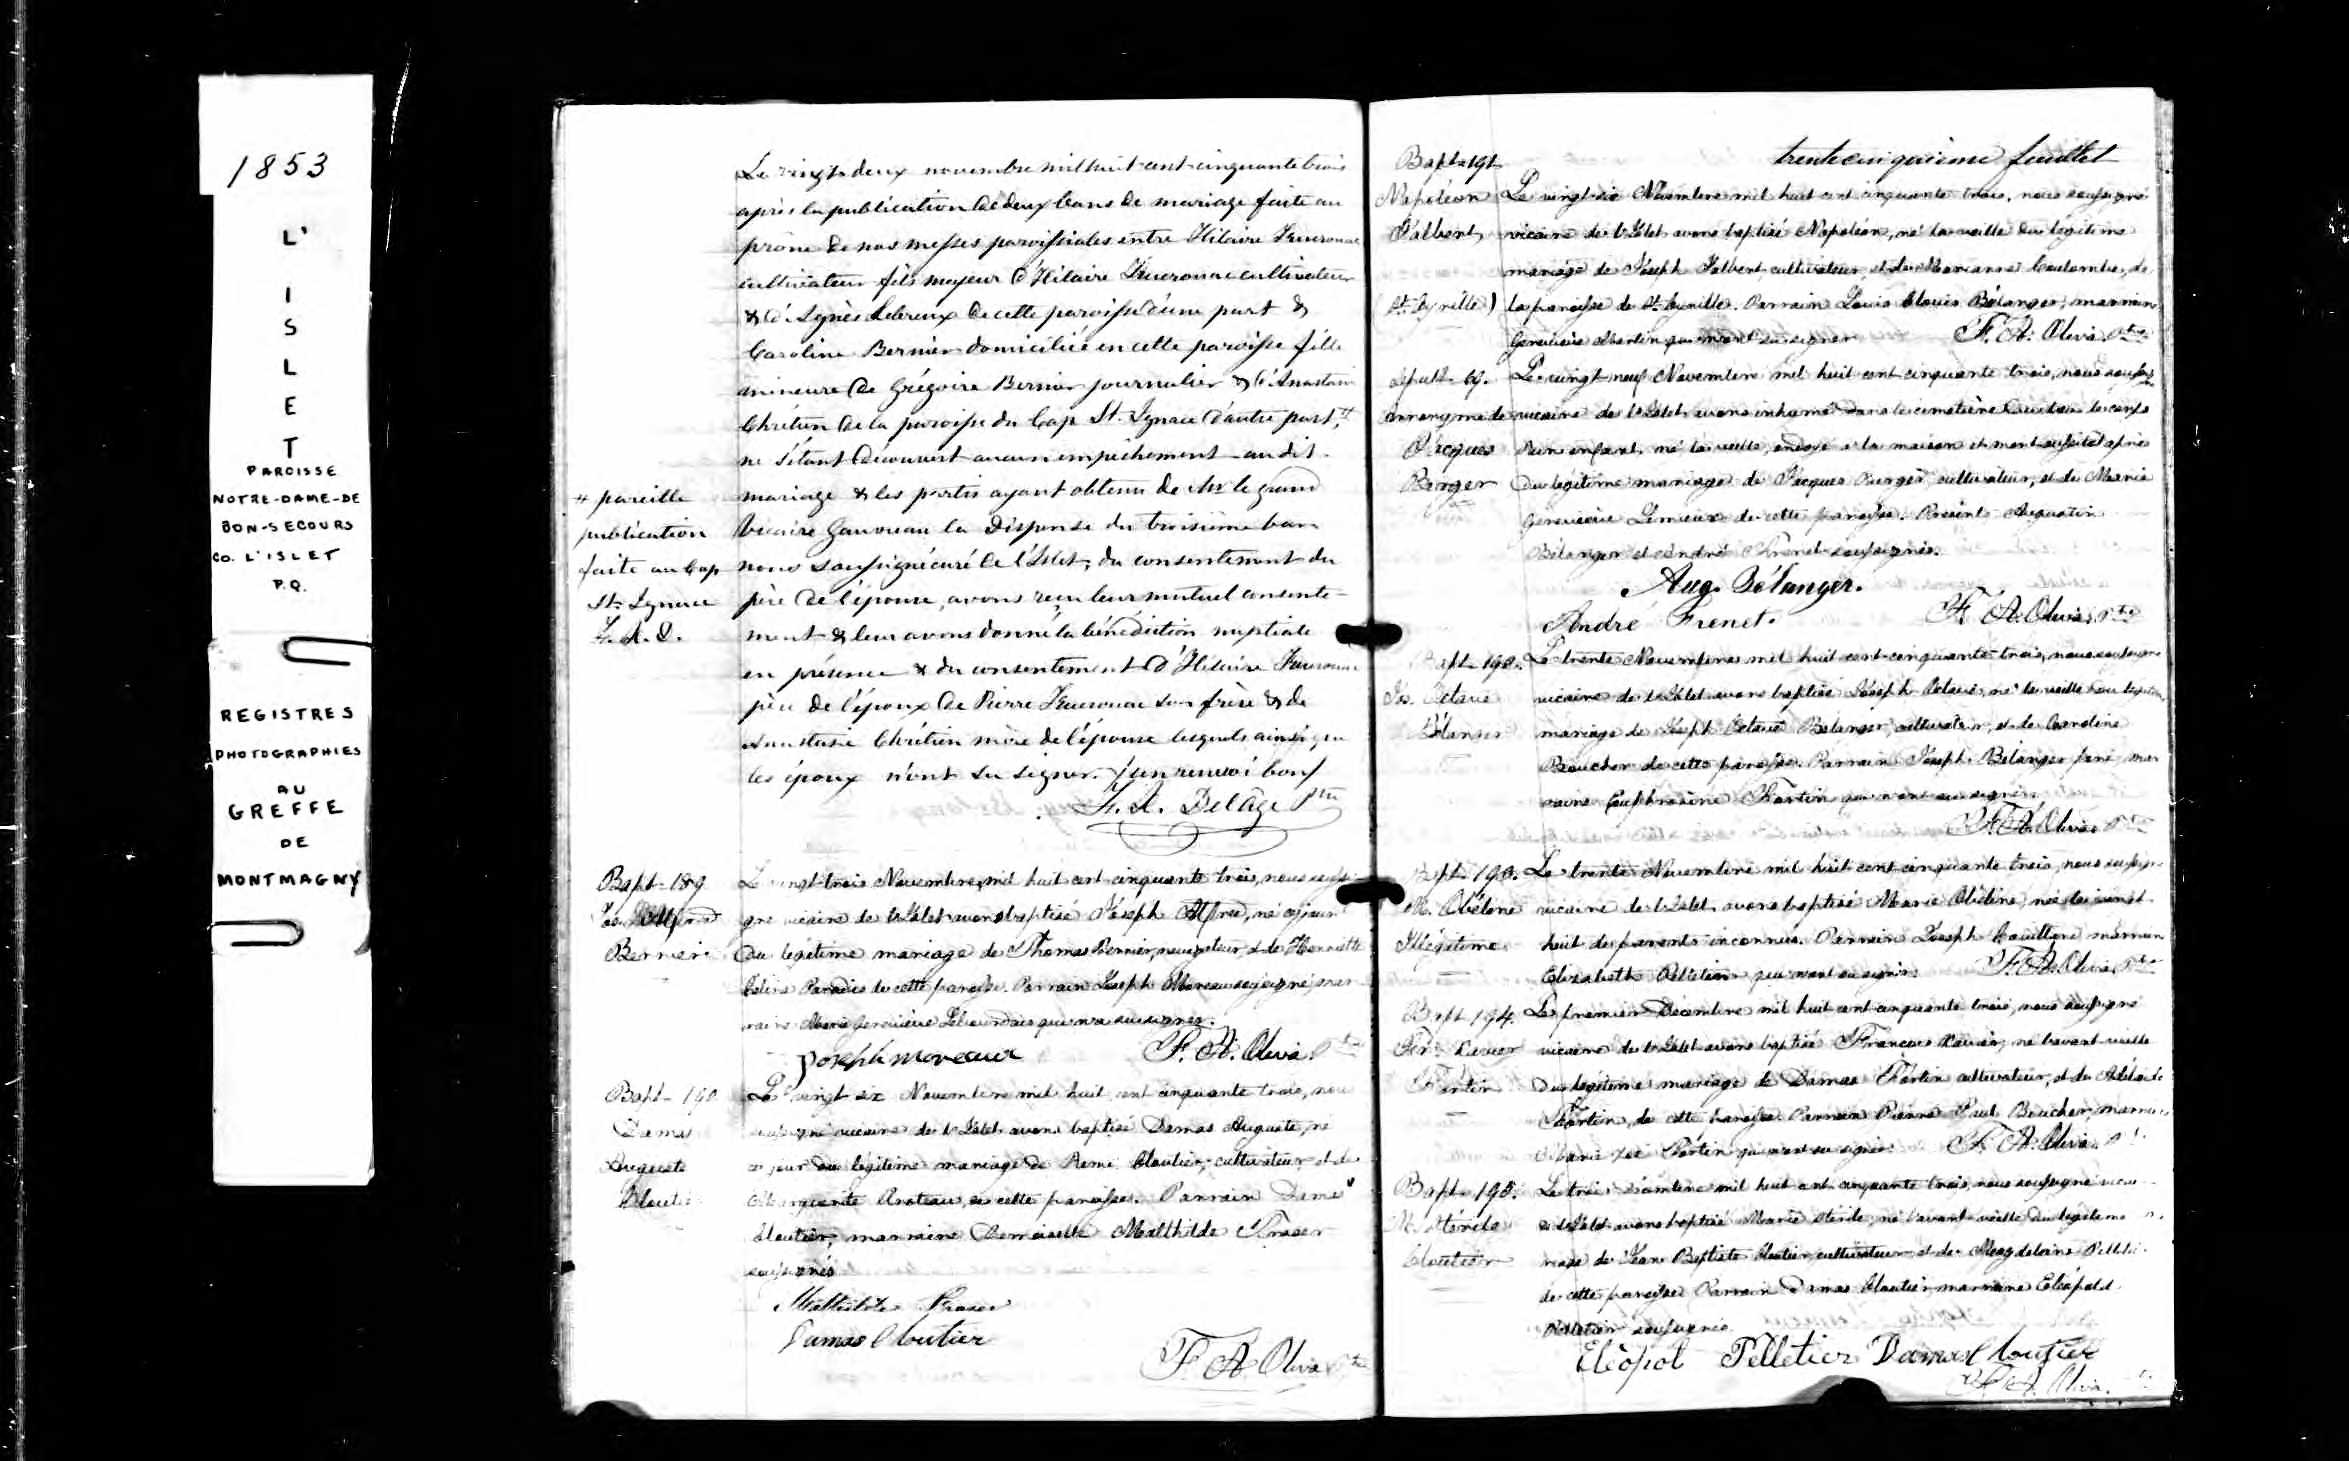 1853
L'
I
S
L
E
T
PAROISSE
NOTRE-DAME-DE
BON-SECOURS
CO. L'ISLET
P.Q.
REGISTRES
PHOTOGRAPHIES
AU
GREFFE
DE
MONTMAGNY
Le vingt-deux novembre mil huit cent cinquante trois
après la publication de deux bans de mariage faite au
prône de nos messes paroissiales entre Hilaire
cultivateur fils majeur d'Hilaire cultivateur
& d'Agnès Lebreux de cette paroisse d'une part &
Caroline Bernier domiciliée en cette paroisse fille
mineure de Grégoire Bernier journalier & d'Anastasie
Chrétien de la paroisse du Cap St. Ignace d'autre part, #
ne s'étant découvert aucun empêchement au dit
mariage & les partis ayant obtenu de Mr le grand
Vicaire la dispense du troisième ban
nous soussigné curé de l'Islet, du consentement du
père de l'épouse, avons reçu leur mutuel consente-
ment & leur avons donné la bénédiction nuptiale
en présence & du consentement d'Hilaire
père de l'époux de Pierre son frère & de
Anastasie Chrétien mère de l'épouse lesquels ainsi que
les époux n'ont su signer. / un renvoi bon /
F. X. Delâge Ptre
# pareille
publication
faite au Cap
St. Ignace
F. X. D.
Bapt- 189
Jos. Alfred
Bernier
Le vingt-trois Novembre mil huit cent cinquante trois, nous soussi-
gné vicaire de l'Islet avons baptisé Joseph Alfred, né ce jour
du légitime mariage de Thomas Bernier, navigateur, & de Henriette
Paradis de cette paroisse. Parrain Joseph Moreau soussigné, mar
raine Marie Geneviève qui n'a su signer.
Joseph Moreau F. A. Oliva Ptre
Bapt- 190
Damas
Auguste
Cloutier
Le vingt six Novembre mil huit cent cinquante trois, nous
soussigné vicaire de l'Islet avons baptisé Damas Auguste, né
ce jour du légitime mariage de Remi Cloutier, cultivateur, et de
de cette paroisse. Parrain Damas
Cloutier, marraine Demoiselle Mathilde Fraser
soussignés
Mathilde Fraser
Damas Cloutier
F. A. Oliva Ptre
trentecinquième feuillet
Bapt- 191
Napoléon
Jalbert
(St. Cyrille)
Le vingt-six Novembre mil huit cent cinquante trois, nous soussigné
vicaire de l'Islet avons baptisé Napoléon, né la veille du légitime
mariage de Joseph Jalbert, cultivateur, et de Marianne Coulombe, de
la paroisse de St. Cyrille. Parrain Louis Bélanger, marraine
Geneviève qui n'ont su signer. F. A. Oliva Ptre
Sépult- 69.
Annonyme de
Jacques
Berger
Le vingt neuf Novembre mil huit cent cinquante trois, nous soussigné
vicaire de l'Islet avons inhumé dans le cimetière de ce lieu le corps
d'un enfant, né la veille, ondoyé à la maison et mort aussitôt après
du légitime mariage de Jacques Berger, cultivateur, et de Marie
Geneviève Lemieux de cette paroisse. Présents Augustin
Bélanger et André Frenet soussignés.
Aug. Bélanger.
André Frenet. F. A. Oliva, Ptre
Jos. Octave
Bélanger
Le trente Novembre mil huit cent cinquante trois, nous soussigné
vicaire de l'Islet avons baptisé Joseph Octave, né la veille du légitime
mariage de Joseph Octave Bélanger, cultivateur, et de Caroline
Boucher de cette paroisse. Parrain Joseph Bélanger père, mar
raine Euphrosine Fortin qui n'ont su signer.
F. A. Oliva Ptre
Illégitime
Le trente Novembre mil huit cent cinquante trois, nous soussigné
vicaire de l'Islet avons baptisé Marie née le vingt
huit de parents inconnus. Parrain Joseph marraine
Elizabeth Pelletier qui n'ont su signer. F. A. Oliva Ptre
Bapt- 194.
Frs. Xavier
Fortin
Le premier Décembre mil huit cent cinquante trois, nous soussigné
vicaire de l'Islet avons baptisé François Xavier, né l'avant-veille
du légitime mariage de Damas Fortin cultivateur, et de Adélaïde
Fortin, de cette paroisse. Parrain Pierre Paul Boucher, marraine
Fortin qui n'ont su signer. F. A. Oliva. Ptre
Bapt- 195.
Cloutier
Le trois Décembre mil huit cent cinquante trois, nous soussigné vicaire
de l'Islet avons baptisé Marie née l'avant-veille du légitime
mariage de Jean Baptiste Cloutier, cultivateur et de Magdeleine Pelletier
de cette paroisse. Parrain Damas Cloutier, marraine
Pelletier soussignés.
Eléopol Pelletier Damas Cloutier
F. A. Oliva. Ptre